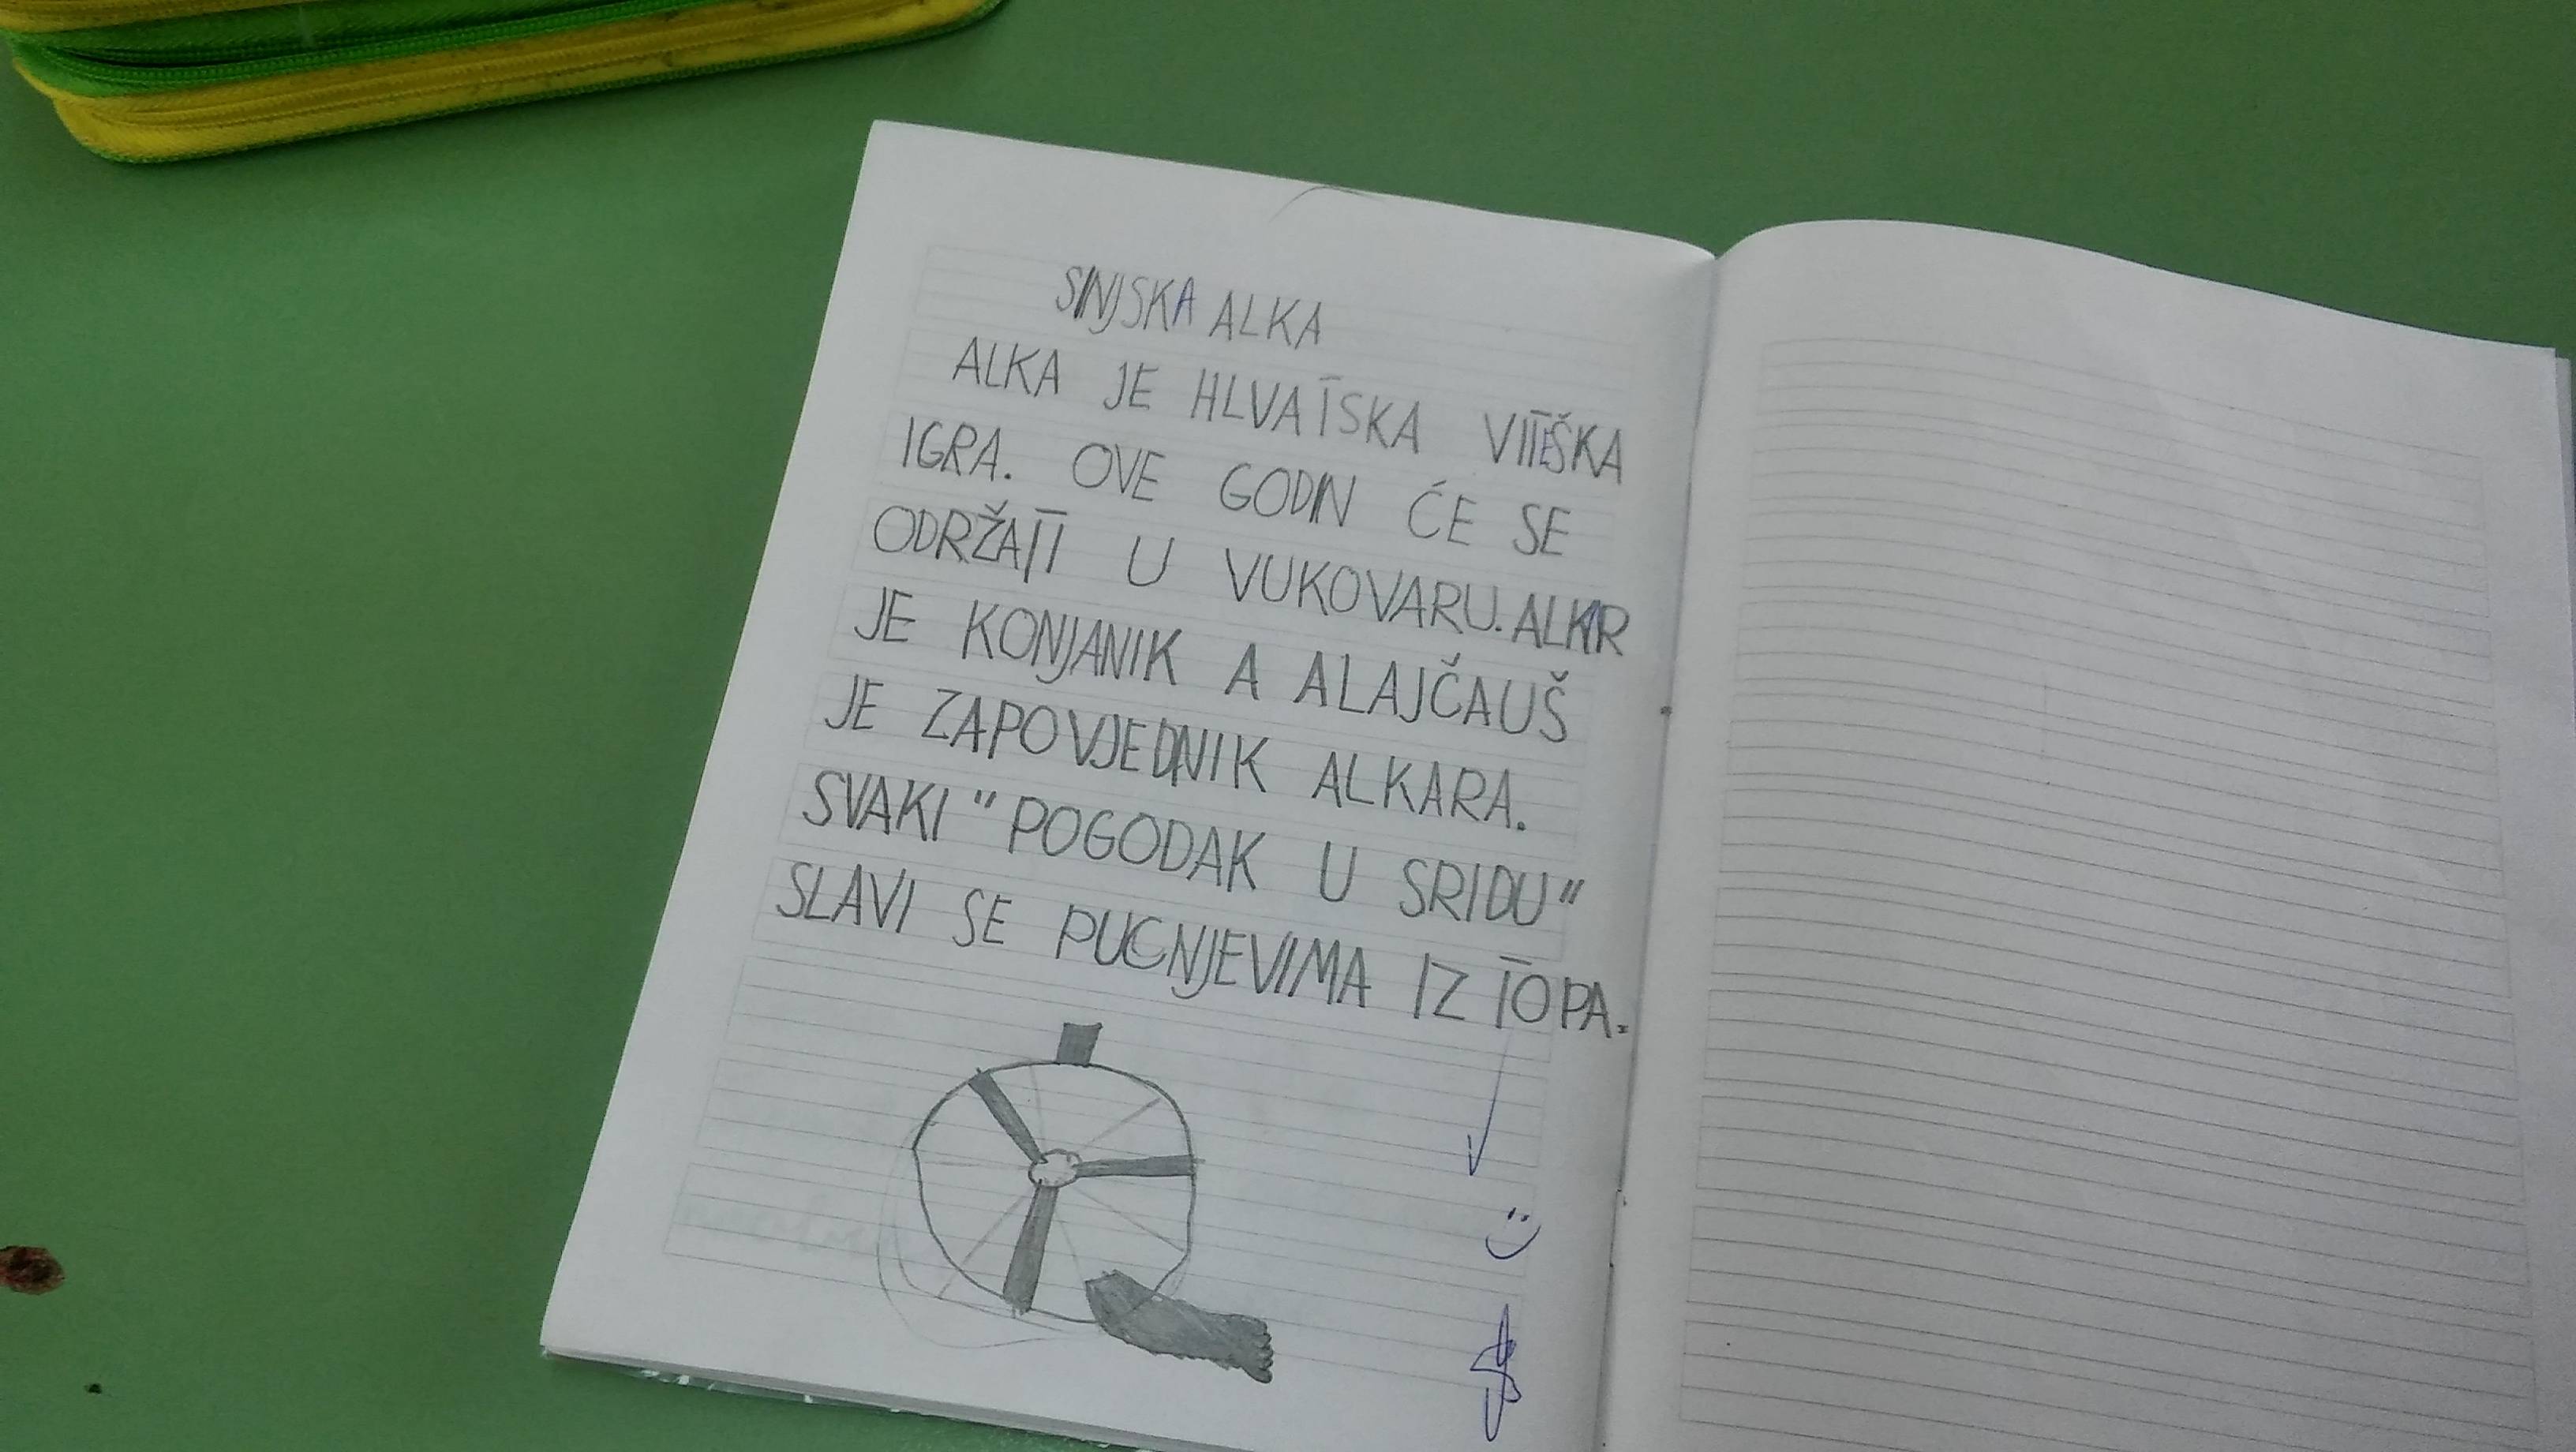 SINJSKA ALKA
ALKA JE HLVATSKA VITEŠKA
IGRA. OVE GODIN ĆE SE
ODRŽATI U VUKOVARU. ALKAR
JE KONJANIK A ALAJČAUŠ
JE ZAPOVJEDNIK ALKARA.
SVAKI "POGODAK U SRIDU"
SLAVI SE PUCNJEVIMA IZ TOPA.